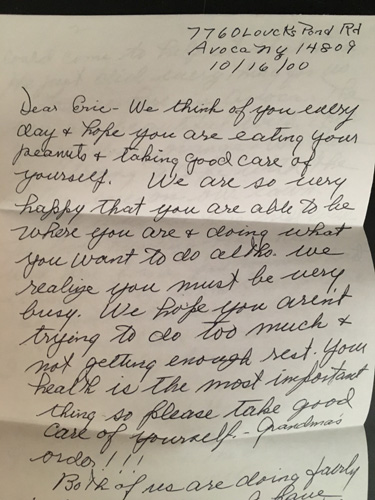 7760 Loucks Pond Rd
Avoca Ny 14809
10/16/00
Dear Eric - We think of you every
day & hope you are eating your
peanuts & taking good care of
yourself. We are so very
happy that you are able to be
where you are & doing what
you want to do altho. we
realize you must be very
busy. We hope you aren't
trying to do too much &
not getting enough rest. Your
health is the most important
thing so please take good
care of yourself - Grandma's
order!!!
Both of us are doing fairly
have